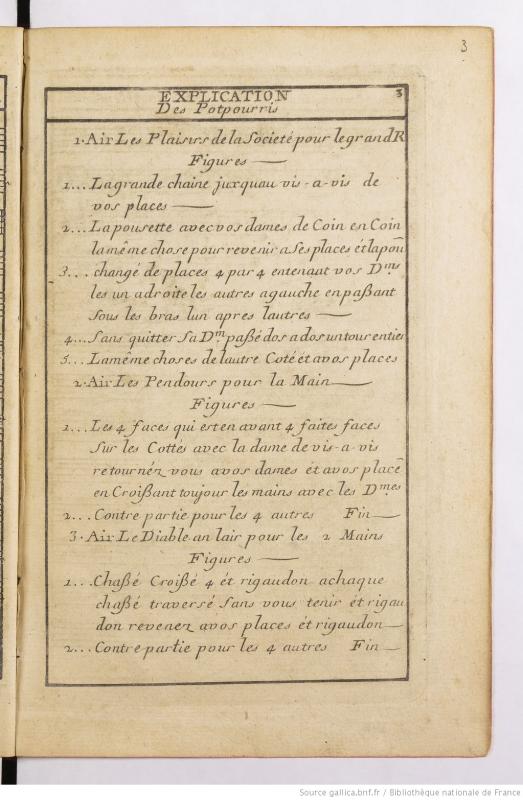 3
EXPLICATION 3
Des Potpourris
1. Air Les Plaisirs de la Societé pour le grand R
Figures
1... La grande chaine juxquau vis-a-vis de
vos places
2... La pousette avec vos dames de Coin en Coin
la même chose pour revenir a ses places ét la pou
3... changé de places 4 par 4 en tenant vos Dmes
les un adroite les autres agauche en paßant
Sous les bras lun apres lautres
4... Sans quitter Sa Dm. paßé dos a dos un tour entier
5... La même choses de lautre Coté ét a vos places
2. Air Les Pendours pour la Main
Figures
1... Les 4 faces qui est en avant 4 faites faces
Sur les Cottés avec la dame de vis-a-vis
retournéz vous avos dames ét avos placê
en Croißant toujour les mains avec les Dmes
2... Contre partie pour les 4 autres Fin
3. Air Le Diable an lair pour les 2 Mains
Figures
1... Chaßé Croißé 4 ét rigaudon achaque
chaßé traversé Sans vous tenir ét rigau
don revenez avos places ét rigaudon
2... Contre-partie pour les 4 autres Fin
Source gallica.bnf.fr / Bibliothèque nationale de France